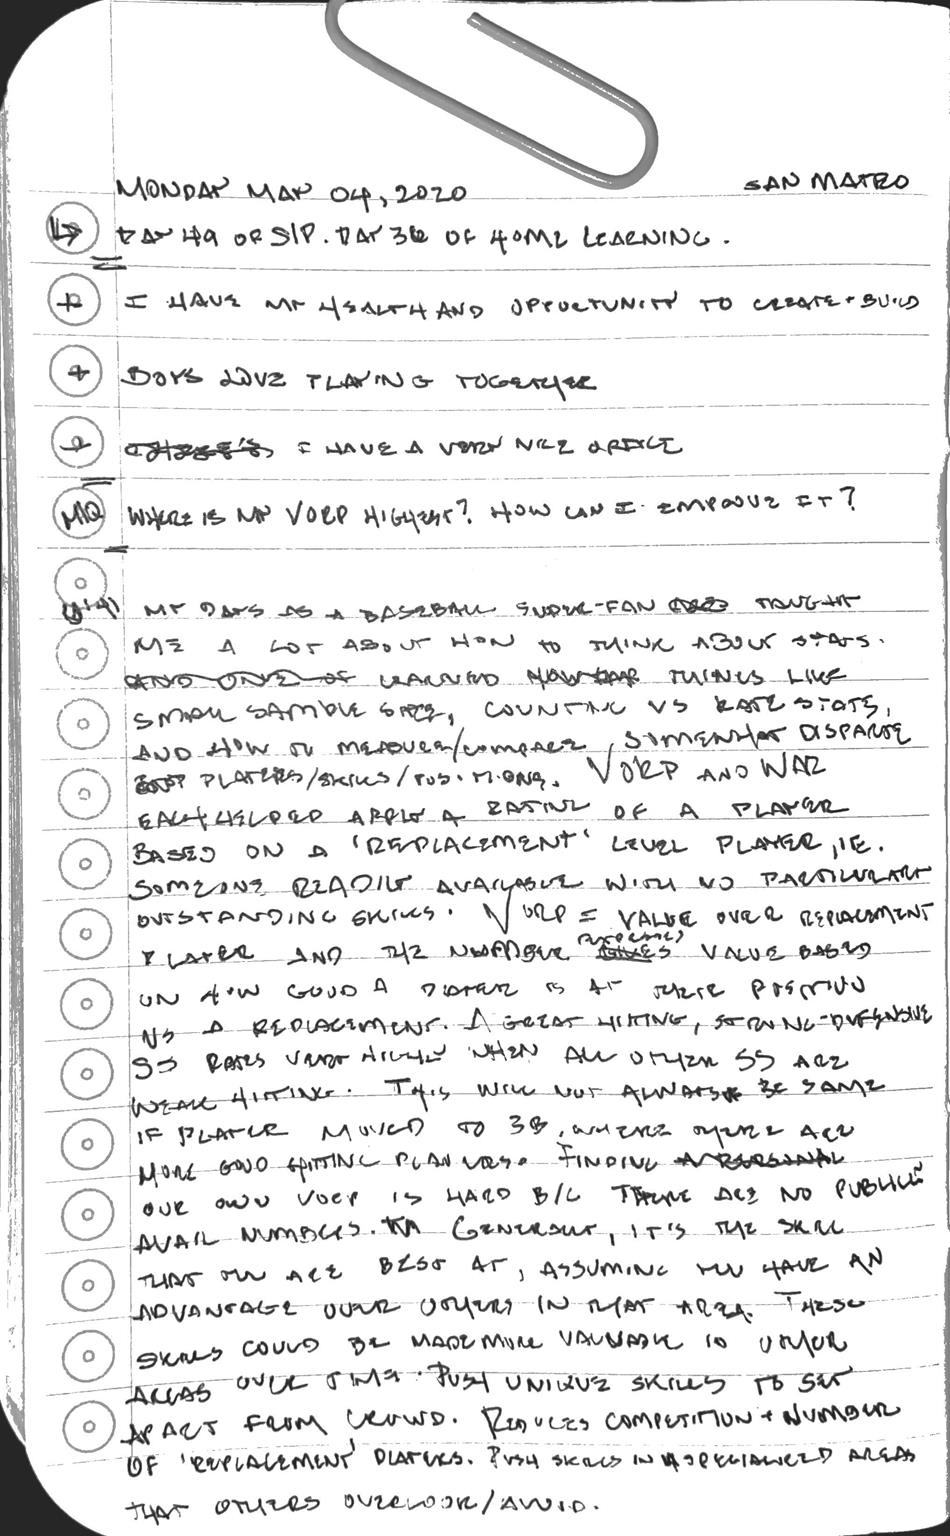 MONDAY MAY 04, 2020 SAN MATEO
DAY 49 OF SIP. DAY 36 OF HOME LEARNING.
+ I HAVE MY HEALTH AND OPPORTUNITY TO CREATE + BUILD
+ BOYS LOVE PLAYING TOGETHER
+ I HAVE A VERY NICE OFFICE
MQ WHERE IS MY VORP HIGHEST? HOW CAN I IMPROVE IT?
MY DAYS AS A BASEBALL SUPER-FAN TAUGHT
ME A LOT ABOUT HOW TO THINK ABOUT STATS.
AND ONE OF LEARNED THINGS LIKE
SMALL SAMPLE SIZE, COUNTING VS RATE STATS,
AND HOW TO MEASURE/COMPARE, SOMEWHAT DISPARATE
PLAYERS/SKILLS/POSITIONS. VORP AND WAR
EACH HELPED APPLY A RATING OF A PLAYER
BASED ON A 'REPLACEMENT' LEVEL PLAYER, IE.
SOMEONE READILY AVAILABLE WITH NO PARTICULARLY
OUTSTANDING SKILLS. VORP = VALUE OVER REPLACEMENT
PLAYER AND THE NUMBER VALUE BASED
ON HOW GOOD A PLAYER IS AT THEIR POSITION
VS A REPLACEMENT. A GREAT HITTING, STRONG-DEFENSIVE
SS RATES VERY HIGHLY WHEN ALL OTHER SS ARE
WEAK HITTING. THIS WILL NOT ALWAYS BE SAME
IF PLAYER MOVED TO 3B, WHERE THERE ARE
MORE GOOD HITTING PLAYERS. FINDING A PERSONAL
OUR OWN VORP IS HARD B/C THERE ARE NO PUBLICLY
AVAIL NUMBERS. IN GENERAL, IT'S THE SKILL
THAT YOU ARE BEST AT, ASSUMING YOU HAVE AN
ADVANTAGE OVER OTHERS IN THAT AREA. THESE
SKILLS COULD BE MADE MORE VALUABLE IN OTHER
AREAS OVER TIME. PUSH UNIQUE SKILLS TO SET
APART FROM CROWD. REDUCES COMPETITION + NUMBER
OF 'REPLACEMENT' PLAYERS. PUSH SKILLS IN SPECIALIZED AREAS
THAT OTHERS OVERLOOK/AVOID.